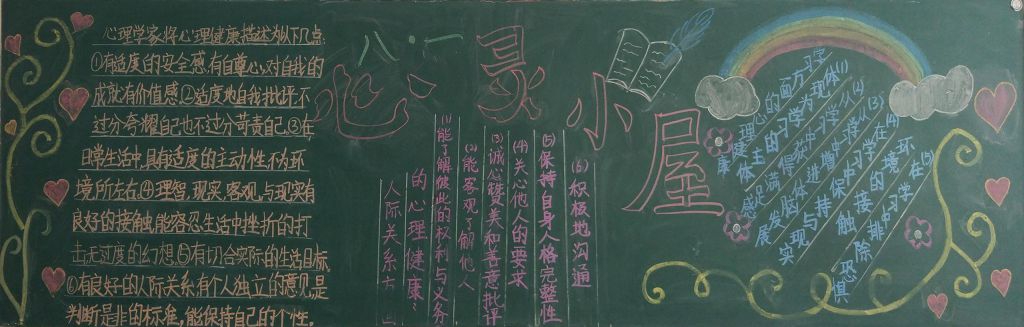 八·一
心灵小屋
心理学家将心理健康描述为以下几点:
①有适度的安全感,有自尊心,对自我的
成就有价值感②适度地自我批评,不
过分夸耀自己也不过分苛责自己③在
日常生活中,具有适度的主动性,不为环
境所左右④理智,现实,客观,与现实有
良好的接触,能容忍生活中挫折的打
击无过度的幻想⑤有切合实际的生活目标
⑥有良好的人际关系有个人独立的意见,是
判断是非的标准,能保持自己的个性。
人际关系方面
的心理健康:
(1)能了解彼此的权利与义务
(2)能客观了解他人
(3)诚心赞美和善意批评
(4)关心他人的要求
(5)保持自身人格完整性
(6)积极地沟通
学习方面的心理健康
体现为学习的主体
(1)从学习中获得满足感
(2)从学习中增进体脑发展
(3)在学习中保持与现实
环境的接触
(5)在学习中排除恐惧